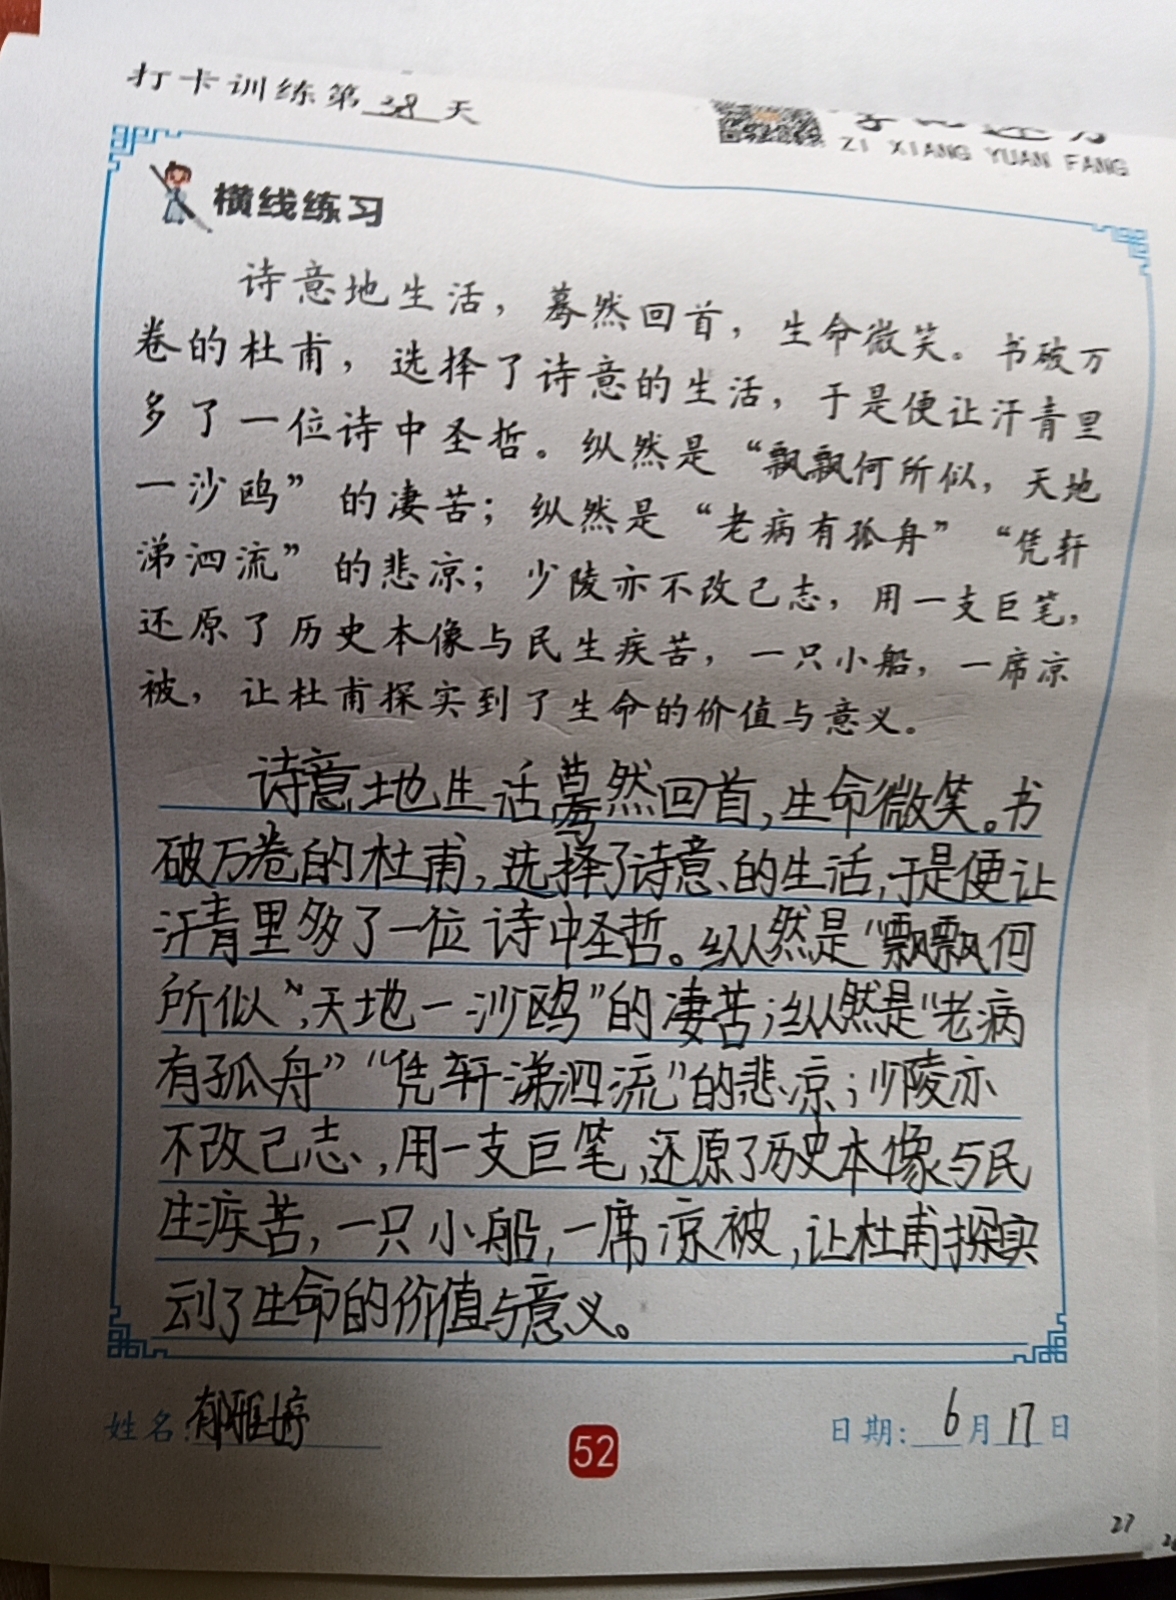 打卡训练第38天
ZI XIANG YUAN FANG
横线练习
诗意地生活，蓦然回首，生命微笑。书破万
卷的杜甫，选择了诗意的生活，于是便让汗青里
多了一位诗中圣哲。纵然是“飘飘何所似，天地
一沙鸥”的凄苦；纵然是“老病有孤舟”“凭轩
涕泗流”的悲凉；少陵亦不改己志，用一支巨笔，
还原了历史本像与民生疾苦，一只小船，一席凉
被，让杜甫探实到了生命的价值与意义。
诗意地生活蓦然回首，生命微笑。书
破万卷的杜甫，选择了诗意的生活，于是便让
汗青里多了一位诗中圣哲。纵然是“飘飘何
所似”，天地一沙鸥”的凄苦；纵然是“老病
有孤舟”“凭轩涕泗流”的悲凉；少陵亦
不改己志，用一支巨笔，还原了历史本像与民
生疾苦，一只小船，一席凉被，让杜甫探实
到了生命的价值与意义。
姓名：郁雅婷
52
日期：6月17日
27